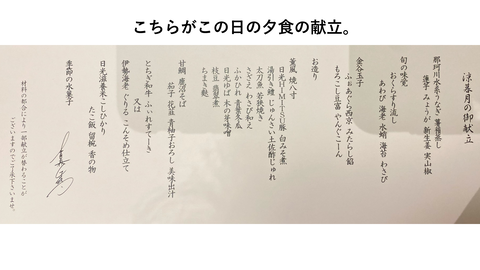 こちらがこの日の夕食の献立。
涼暮月の御献立
那珂川水系うなぎ 薯蕷蒸し
蓮芋 みょうが 新生姜 実山椒
旬の味覚
おくらすり流し
あわび 海老 水蛸 海苔 わさび
金谷玉子
ふぉあぐら西京 みたらし餡
もろこし豆富 やんぐこーん
お造り
薫風 焼八寸
日光HIMITSU豚 白みそ煮
湯引き鱧 じゅんさい 土佐酢じゅれ
太刀魚 若狭焼き
さざえ わさび和え
ふかひれ 青葉木瓜
日光ゆば 木の芽味噌
枝豆 翡翠煮
ちまき麩
甘鯛 鹿沼そば
茄子 花韮 青柚子おろし 美味出汁
とちぎ和牛 ふぃれすてーき
又は
伊勢海老 ぐりる こんそめ仕立て
日光滋養米こしひかり
たこ飯 留椀 香の物
季節の水菓子
材料の都合により一部献立が替わることが
ございますのでご了承下さいませ。